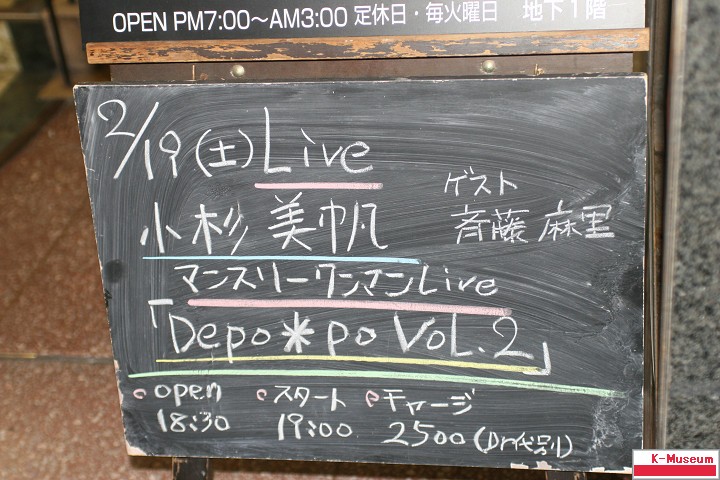 OPEN PM7:00～AM3:00 定休日・毎火曜日 地下1階
2/19(土)Live
ゲスト
小杉美帆 斉藤麻里
マンスリーワンマンLive
「Depo＊po VoL.2」
open スタート チャージ
18:30 19:00 2500(Dr代別)
K-Museum